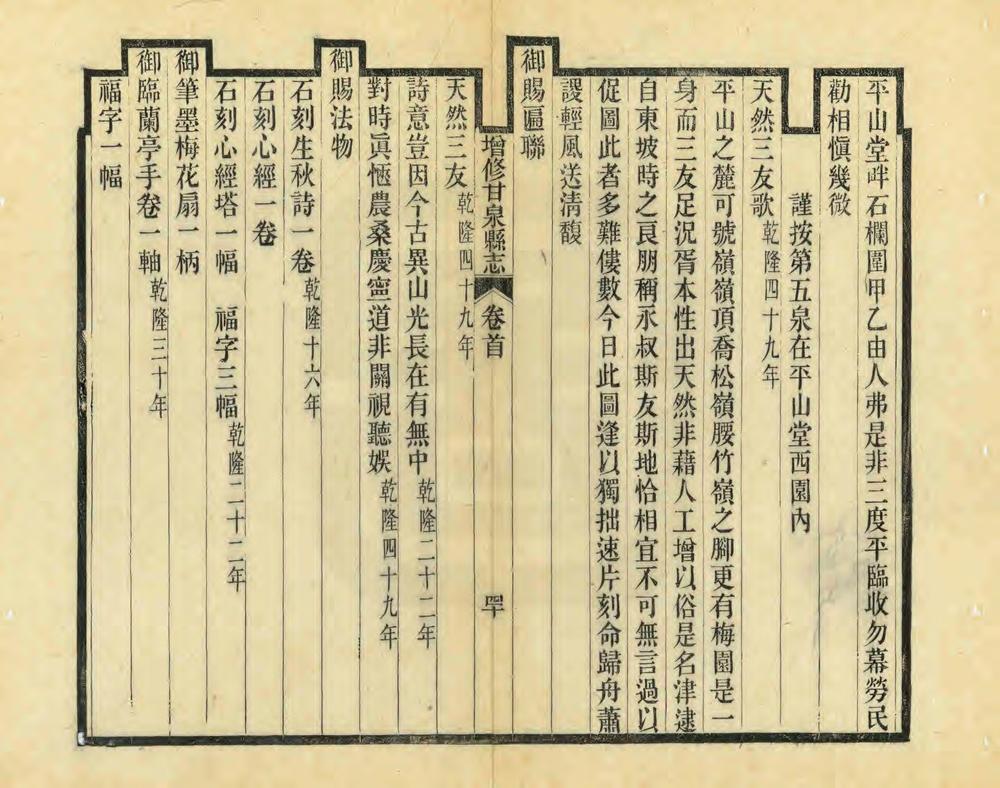 平山堂畔石欄圍甲乙由人弗是非三度平臨收勿幕勞民
勸相愼幾微
謹按第五泉在平山堂西園內
天然三友歌乾隆四十九年
平山之麓可號嶺嶺頂喬松嶺腰竹嶺之腳更有梅園是一
身而三友足況胥本性出天然非藉人工增以俗是名津逮
自東坡時之良朋稱永叔斯友斯地恰相宜不可無言過以
促圖此者多難僂數今日此圖逢以獨拙速片刻命歸舟蕭
謖輕風送淸馥
御賜匾聯
增修甘泉縣志 卷首 四十
天然三友乾隆四十九年
詩意豈因今古異山光長在有無中乾隆二十二年
對時眞愜農桑慶寍道非關視聽娛乾隆四十九年
御賜法物
石刻生秋詩一卷乾隆十六年
石刻心經一卷
石刻心經塔一幅 福字三幅乾隆二十二年
御筆墨梅花扇一柄
御臨蘭亭手卷一軸乾隆三十年
福字一幅